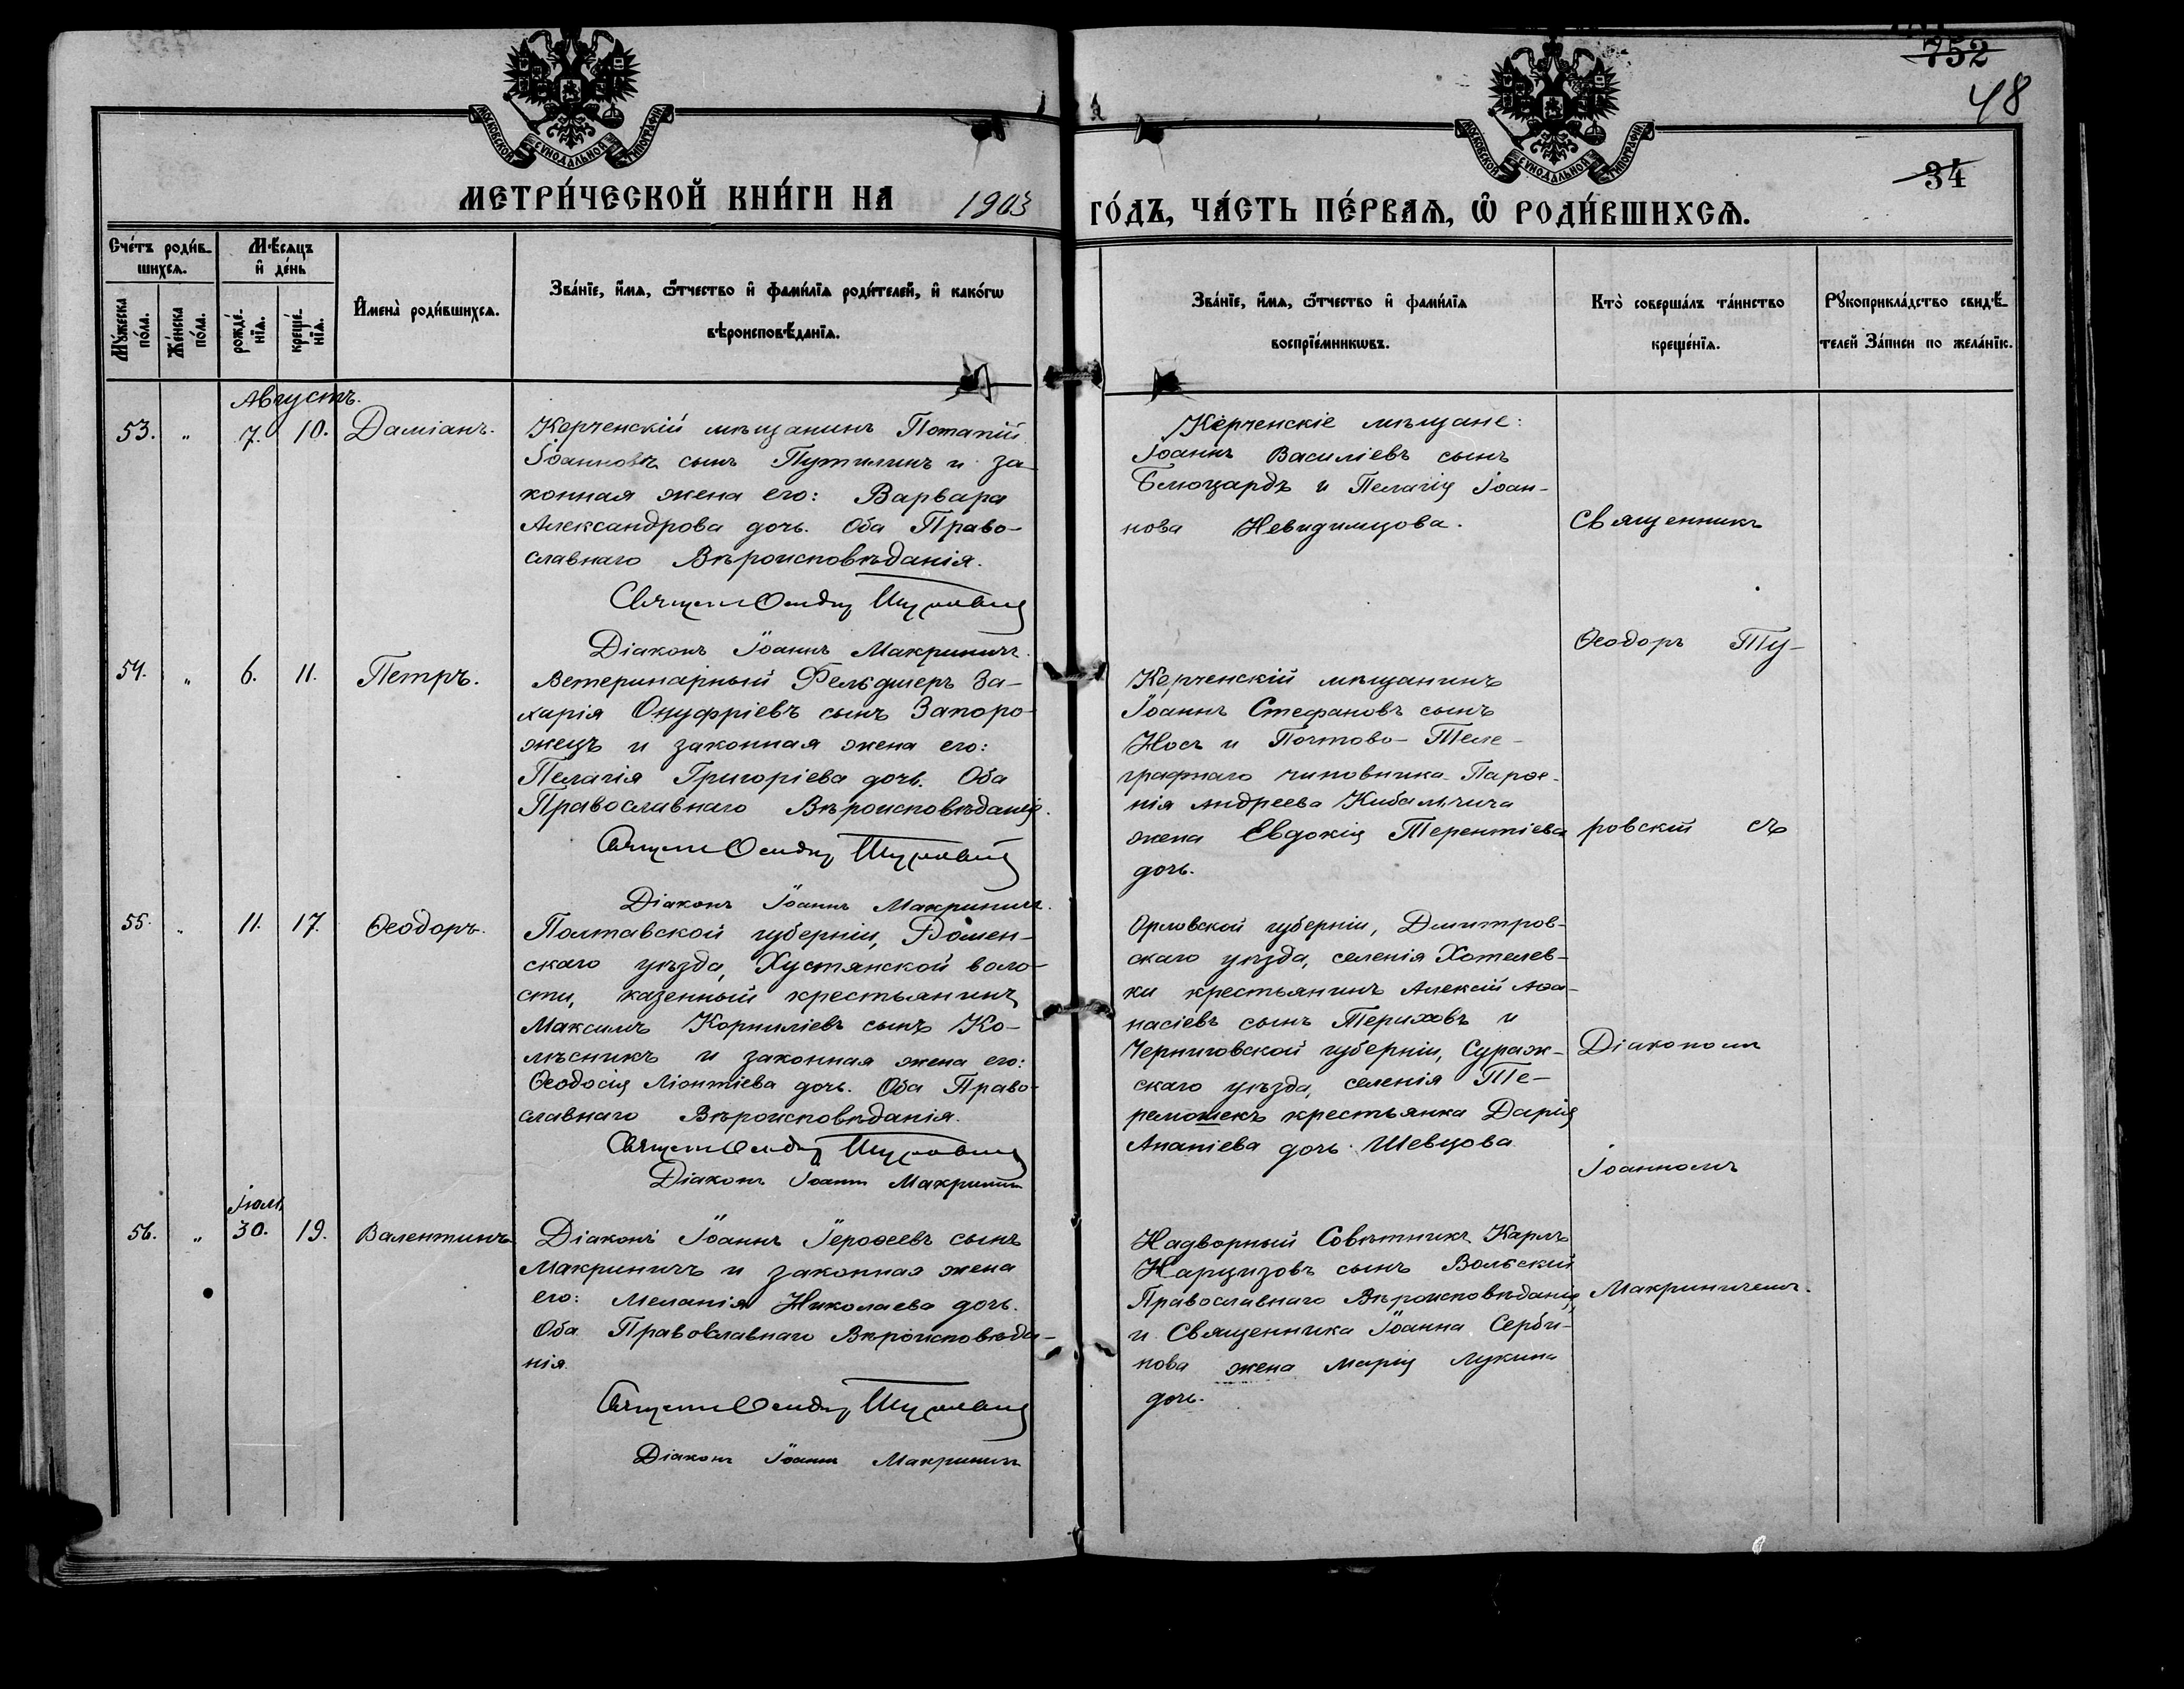 752
48
34
МОСКОВСКОЙ СѴНОДАЛЬНОЙ ТИПОГРАФІИ
МОСКОВСКОЙ СѴНОДАЛЬНОЙ ТИПОГРАФІИ
МЕТРИ́ЧЕСКОЙ КНИ́ГИ НА 1903
ГО́ДЪ, ЧА́СТЬ ПЕ́РВАѦ, Ѽ РОДИ́ВШИХСѦ.
Сче́тъ роди́в-
шихсѧ.
Мꙋ́жеска по́ла.
Же́нска по́ла.
Мѣ́сѧцъ
и҆ де́нь
рожде́-
нїѧ.
креще́-
нїѧ.
И҆мена̀ роди́вшихсѧ.
Зва́нїе, и҆́мѧ, ѻ҆́тчество и҆ фами́лїѧ роди́телей, и҆ како́гѡ
вѣроисповѣ́данїѧ.
Зва́нїе, и҆́мѧ, ѻ҆́тчество и҆ фами́лїѧ
воспрїе́мникѡвъ.
Кто̀ соверша́лъ та́инство
креще́нїѧ.
Рꙋкоприкла́дство свидѣ́-
телей за́писи по жела́нїю.
Августъ.
53. „ 7. 10. Даміанъ.
Керченскій мѣщанинъ Потапій
Іоанновъ сынъ Путилинъ и за-
конная жена его: Варвара
Александрова дочь. Оба Право-
славнаго Вѣроисповѣданія.
Діаконъ Іоаннъ Макриничъ.
Керченскіе мѣщане:
Іоаннъ Василіевъ сынъ
Блюцардъ и Пелагія Іоан-
нова Невидимцова.
Священникъ
Ѳеодоръ Ту-
54. „ 6. 11. Петръ.
Ветеринарный Фельдшеръ За-
харія Онуфріевъ сынъ Запоро-
жецъ и законная жена его:
Пелагія Григоріева дочь. Оба
Православнаго Вѣроисповѣданія.
Діаконъ Іоаннъ Макриничъ.
Керченскій мѣщанинъ
Іоаннъ Стефановъ сынъ
Носъ и Почтово-Теле-
графнаго чиновника Парѳе-
нія Андреева Кибальчича
жена Евдокія Терентіева
дочь.
ровскій съ
55. „ 11. 17. Ѳеодоръ.
Полтавской губерніи, Ромен-
скаго уѣзда, Хустянской воло-
сти, казенный крестьянинъ
Максимъ Корниліевъ сынъ Ко-
лѣсникъ и законная жена его:
Ѳеодосія Ліонтіева дочь. Оба Право-
славнаго Вѣроисповѣданія.
Діаконъ Іоаннъ Макриничъ
Орловской губерніи, Дмитров-
скаго уѣзда, селенія Хотелев-
ки крестьянинъ Алексій Аѳа-
насіевъ сынъ Териховъ и
Черниговской губерніи, Сураж-
скаго уѣзда, селенія Те-
ремошекъ крестьянка Дарія
Ананіева дочь Шевцова
Діакономъ
Іоанномъ
Іюль
56. „ 30. 19. Валентинъ
Діаконъ Іоаннъ Іероѳеевъ сынъ
Макриничъ и законная жена
его: Меланія Николаева дочь.
Оба Православнаго Вѣроисповѣда-
нія.
Діаконъ Іоаннъ Макриничъ
Надворный Совѣтникъ Карлъ
Нарцизовъ сынъ Вольскій
Православнаго Вѣроисповѣданія,
и Священника Іоанна Серби-
нова жена Марія Лукина
дочь.
Макриничемъ.